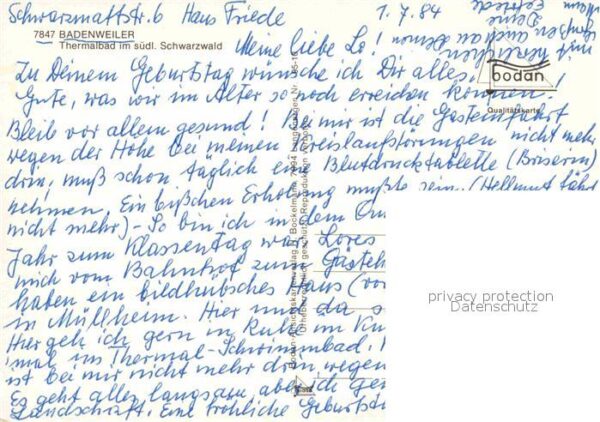 Schwarzmattstr. 6 Haus Friede 1.7.84
7847 BADENWEILER
Thermalbad im südl. Schwarzwald
Meine liebe Lo!
Zu Deinem Geburtstag wünsche ich Dir alles
Gute, was wir im Alter so noch erreichen können!
Bleibe vor allem gesund! Bei mir ist die Gasteinfahrt
wegen der Höhe bei meinen Kreislaufstörungen nicht mehr
drin, muß schon täglich eine Blutdrucktablette (Briserin)
nehmen. Ein bißchen Erholung mußte sein. (Hellmut fährt
nicht mehr) – So bin ich in dem
Jahr zum Klassentag war, Lores
mich vom Bahnhof zum Gästeh
haben ein bildhübsches Haus (vo
in Müllheim. Hier und da s
Hier geh ich gern in Ruhe im Ku
mal ins Thermal-Schwimmbad.
ist bei mir nicht mehr drin wegen
Es geht alles langsam, aber ich ge
Landschaft. Eine fröhliche Geburtst
bodan
Qualitätskarte
mit herzlichen
Deine
Elfriede
privacy protection
Datenschutz